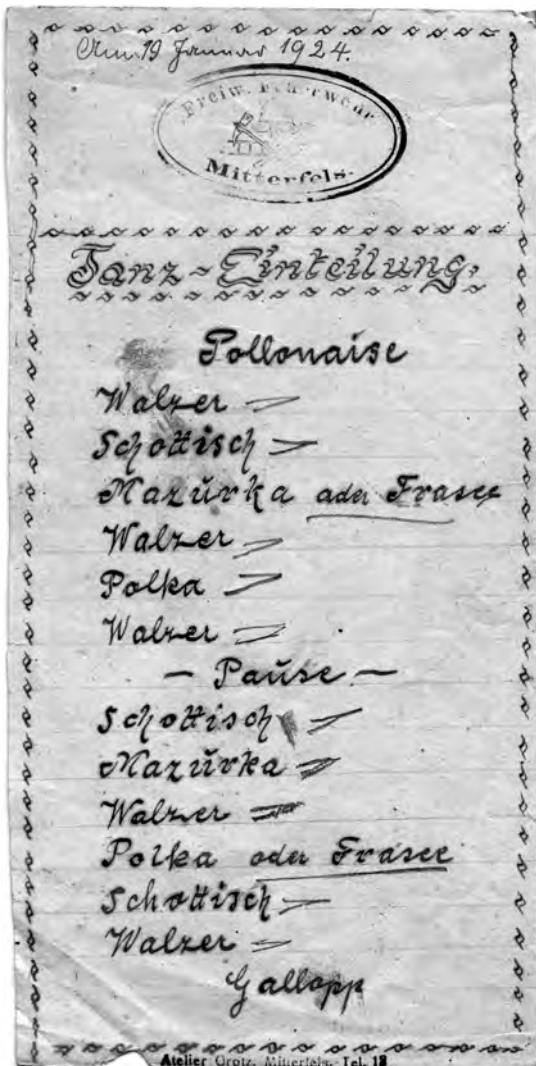 Am 19 Januar 1924.
Freiw. Feuerwehr
Mitterfels.
Tanz-Einteilung.
Pollonaise
Walzer
Schottisch
Mazurka oder Frasee
Walzer
Polka
Walzer
- Pause -
Schottisch
Mazurka
Walzer
Polka oder Frasee
Schottisch
Walzer
Gallopp
Atelier Grotz, Mitterfels, Tel. 18